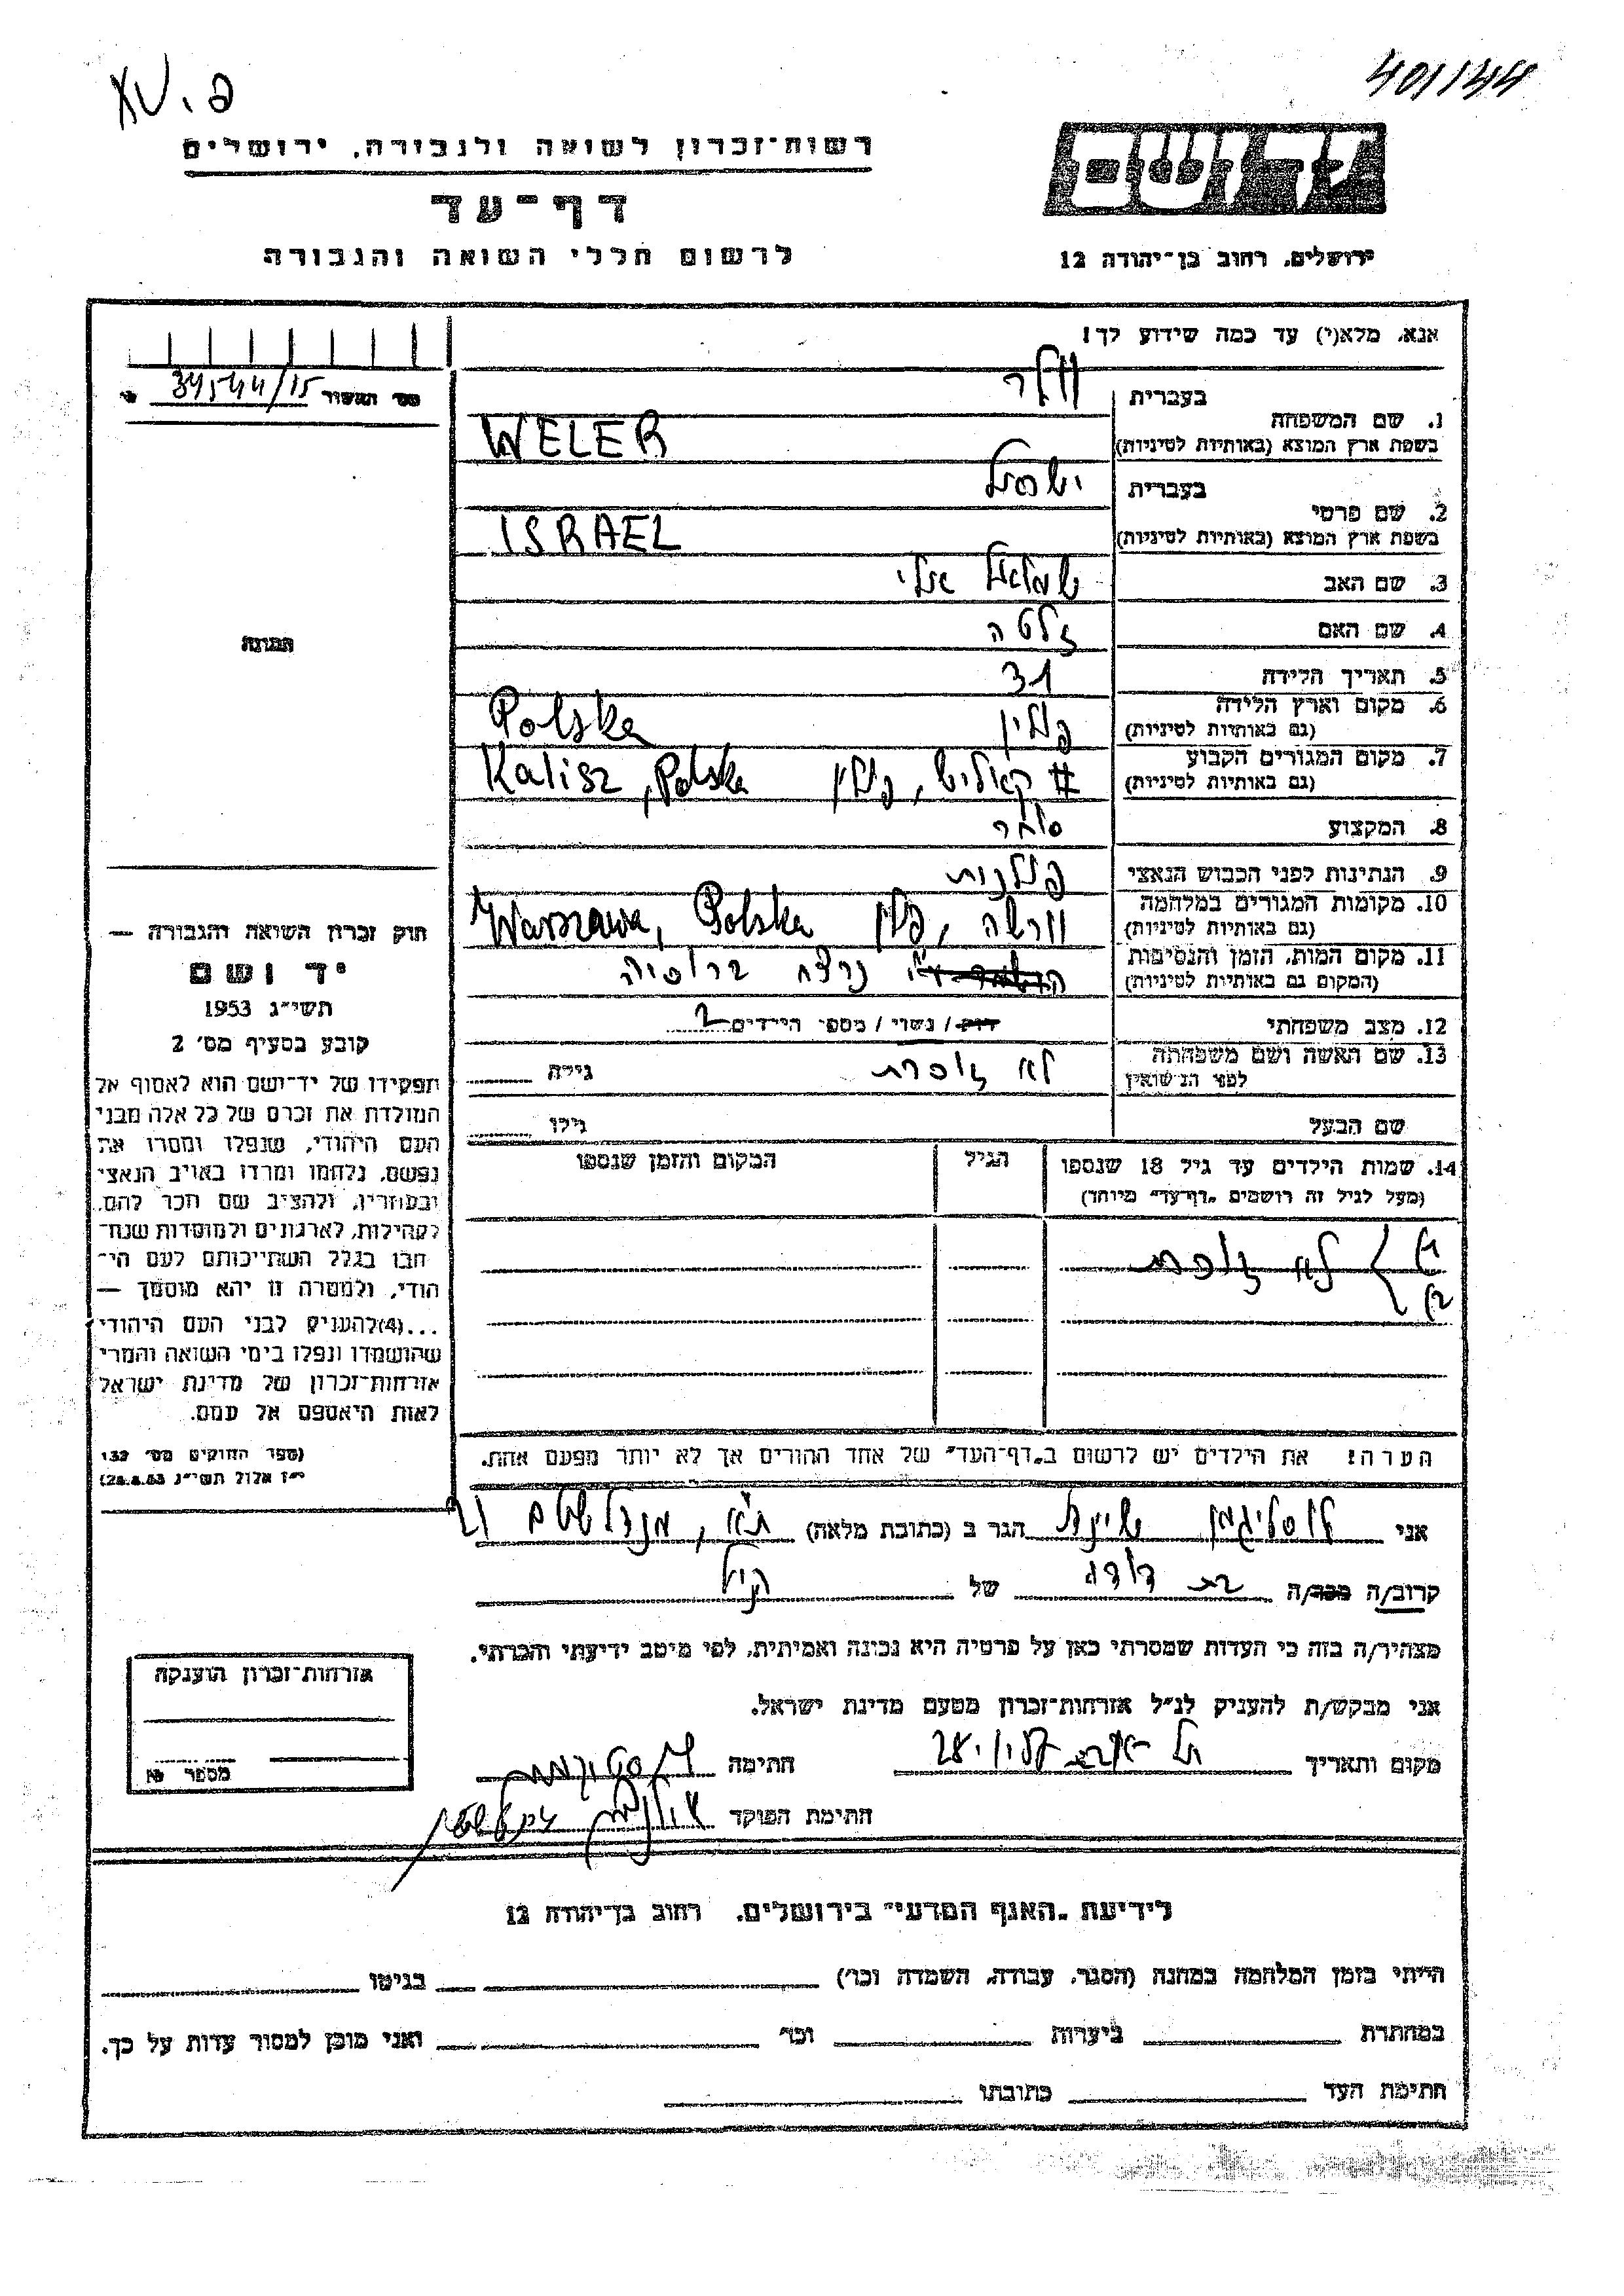 401144
רשות־זכרון לשואה ולגבורה, ירושלים
דף־עד
לרשום חללי השואה והגבורה
יד ושם
ירושלים, רחוב בן־יהודה 12
אנא, מלא(י) עד כמה שידוע לך!
מס' התעודה 34544/15
1. שם המשפחה
בעברית ולר
בשפת ארץ המוצא (באותיות לטיניות) WELER
2. שם פרטי
בעברית ישראל
בשפת ארץ המוצא (באותיות לטיניות) ISRAEL
3. שם האב שמואל אלי
4. שם האם זלטה
5. תאריך הלידה 31
6. מקום וארץ הלידה (גם באותיות לטיניות) פולין Polska
7. מקום המגורים הקבוע (גם באותיות לטיניות) קאליש, פולין Kalisz, Polska
8. המקצוע סוחר
9. הנתינות לפני הכבוש הנאצי פולנית
10. מקומות המגורים במלחמה (גם באותיות לטיניות) וורשה, פולין Warszawa, Polska
11. מקום המות, הזמן והנסיבות (המקום גם באותיות לטיניות) נרצח ברוסיה
12. מצב משפחתי רווק / נשוי / מספר הילדים 2
13. שם האשה ושם משפחתה לפני הנישואין לא זוכרת גילה
שם הבעל גילו
14. שמות הילדים עד גיל 18 שנספו הגיל המקום והזמן שנספו
(מעל לגיל זה רושמים "דף־עד" מיוחד)
לא זוכרת
הערה! את הילדים יש לרשום ב"דף־העד" של אחד ההורים אך לא יותר מפעם אחת.
התמונה
חוק זכרון השואה והגבורה —
יד ושם
תשי"ג 1953
קובע בסעיף מס' 2
תפקידו של יד־ושם הוא לאסוף אל
המולדת את זכרם של כל אלה מבני
העם היהודי, שנפלו ומסרו את
נפשם, נלחמו ומרדו באויב הנאצי
ובעוזריו, ולהציב שם וזכר להם,
לקהילות, לארגונים ולמוסדות שנח־
רבו בגלל השתייכותם לעם הי־
הודי, ולמטרה זו יהא מוסמך —
...(4)להעניק לבני העם היהודי
שהושמדו ונפלו בימי השואה והמרי
אזרחות־זכרון של מדינת ישראל
לאות היאספם אל עמם.
(ספר החוקים מס' 132
י"ז אלול תשי"ג 28.8.53)
אני זליגמן הגר ב (כתובת מלאה) ת"א, מנדלשטם 21
קרוב/ה מכר/ה בת דודו של הנ"ל
מצהיר/ה בזה כי העדות שמסרתי כאן על פרטיה היא נכונה ואמיתית, לפי מיטב ידיעתי והכרתי.
אני מבקש/ת להעניק לנ"ל אזרחות־זכרון מטעם מדינת ישראל.
מקום ותאריך תל אביב חתימה
חתימת הפוקד
אזרחות־זכרון הוענקה
מספר
לידיעת "האגף המדעי" בירושלים, רחוב בן־יהודה 12
הייתי בזמן המלחמה במחנה (הסגר, עבודה, השמדה וכו') בגיטו
במחתרת ביערות וכו' ואני מוכן למסור עדות על כך.
חתימת העד כתובתו